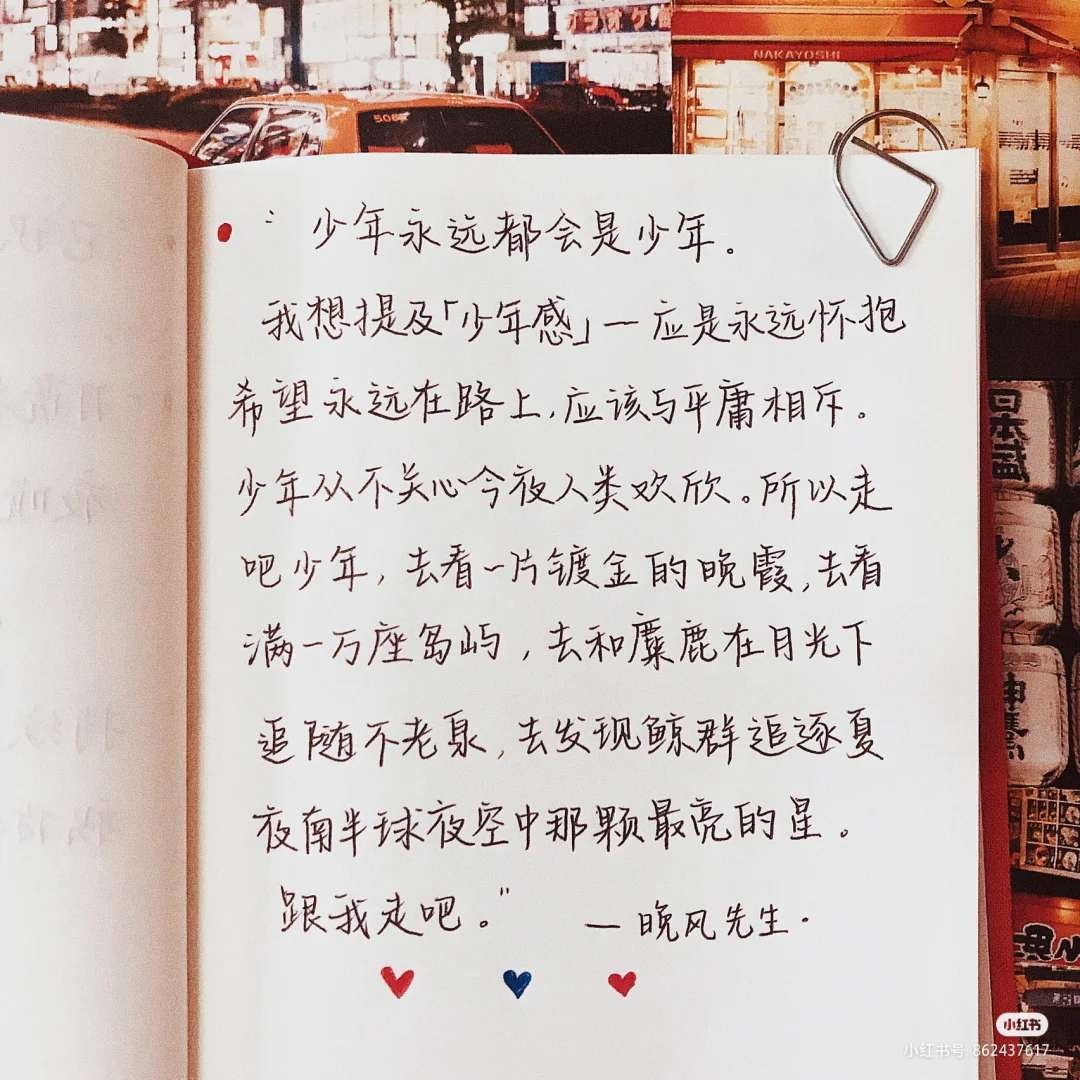 カラオケ
NAKAYOSHI
506
“ 少年永远都会是少年。
我想提及「少年感」一应是永远怀抱
希望永远在路上,应该与平庸相斥。
少年从不关心今夜人类欢欣。所以走
吧少年,去看一片镀金的晚霞,去看
满一万座岛屿,去和麋鹿在月光下
追随不老泉,去发现鲸群追逐夏
夜南半球夜空中那颗最亮的星。
跟我走吧。”
—晚风先生·
小红书
小红书号:862437617